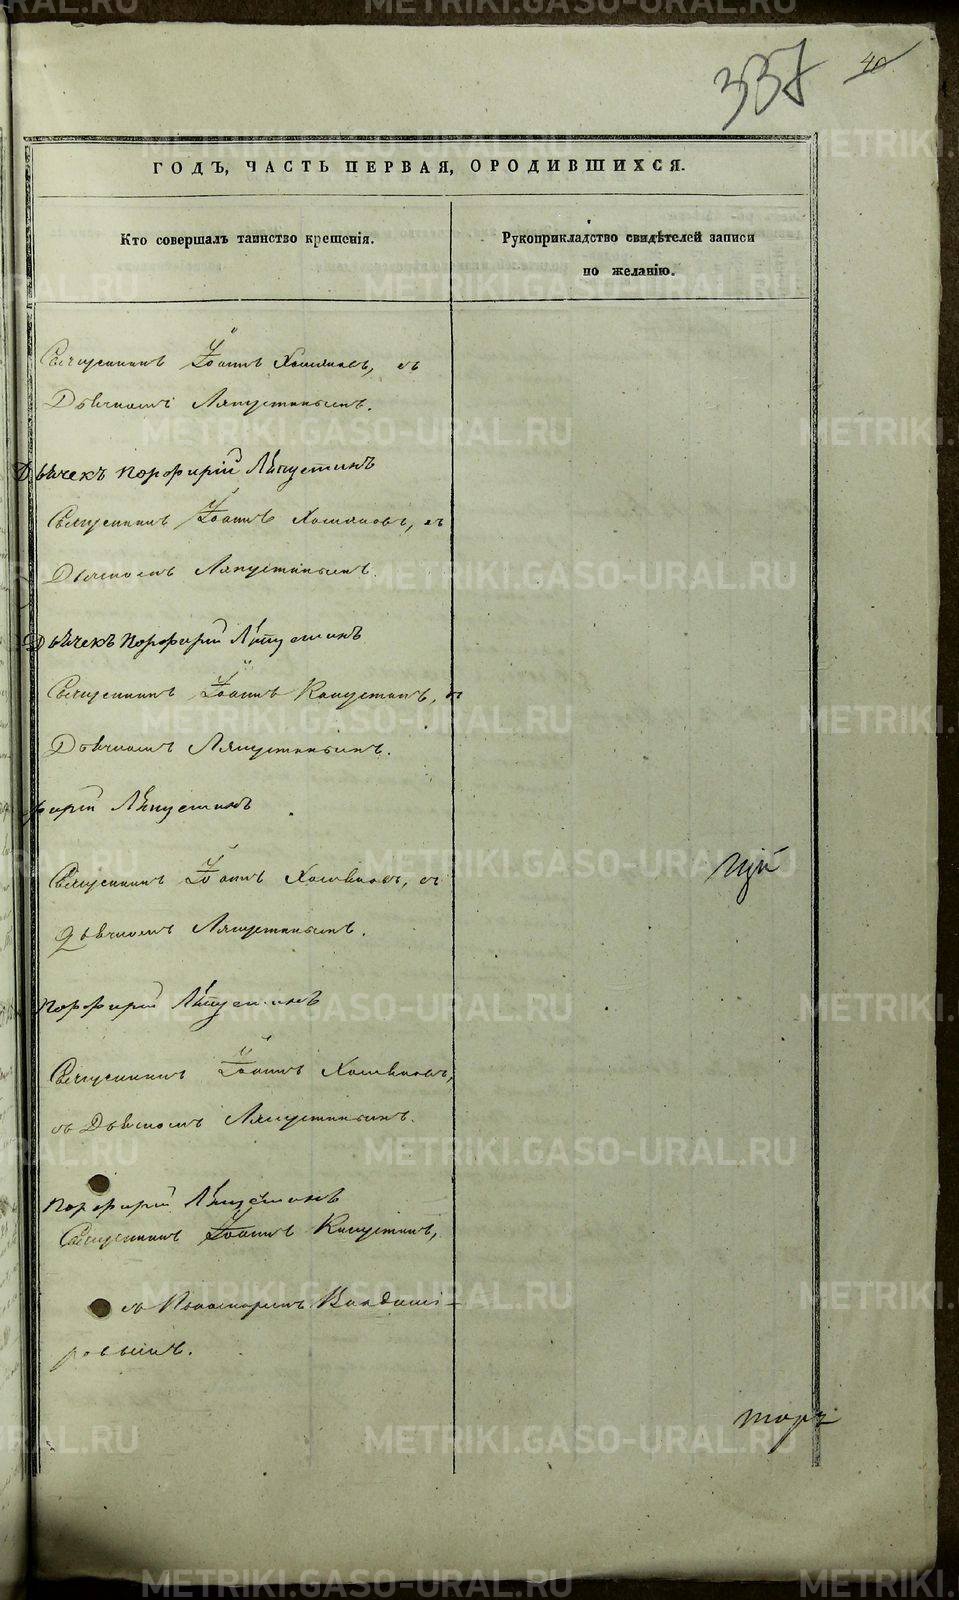 337 40
ГОДЪ, ЧАСТЬ ПЕРВАЯ, О РОДИВШИХСЯ.
Кто совершалъ таинство крещенія.
Рукоприкладство свидѣтелей записи
по желанію.
Священникъ Іоаннъ Хомяковъ, съ
Дьячкомъ Ляпустинымъ.
Дьячекъ Порфирій Ляпустинъ
Священникъ Іоаннъ Хомяковъ, съ
Дьячкомъ Ляпустинымъ.
Дьячекъ Порфирій Ляпустинъ
Священникъ Іоаннъ Капустинъ, съ
Дьячкомъ Ляпустинымъ.
фирій Ляпустинъ
Священникъ Іоаннъ Хомяковъ, съ
Дьячкомъ Ляпустинымъ.
Порфирій Ляпустинъ
Священникъ Іоаннъ Хомяковъ,
съ Дьячкомъ Ляпустинымъ.
Порфирій Ляпустинъ
Священникъ Іоаннъ Капустинъ,
съ Пономаремъ
METRIKI.GASO-URAL.RU